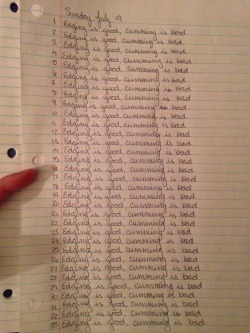 Sunday July 19
1 Edging is good, cumming is bad
2 Edging is good, cumming is bad
3 Edging is good, cumming is bad
4 Edging is good, cumming is bad
5 Edging is good, cumming is bad
6 Edging is good, cumming is bad
7 Edging is good, cumming is bad
8 Edging is good, cumming is bad
9 Edging is good, cumming is bad
10 Edging is good, cumming is bad
11 Edging is good, cumming is bad
12 Edging is good, cumming is bad
13 Edging is good, cumming is bad
14 Edging is good, cumming is bad
15 Edging is good, cumming is bad
16 Edging is good, cumming is bad
17 Edging is good, cumming is bad
18 Edging is good, cumming is bad
19 Edging is good, cumming is bad
20 Edging is good, cumming is bad
21 Edging is good, cumming is bad
22 Edging is good, cumming is bad
23 Edging is good, cumming is bad
24 Edging is good, cumming is bad
25 Edging is good, cumming is bad
26 Edging is good, cumming is bad
27 Edging is good, cumming is bad
28 Edging is good, cumming is bad
29 Edging is good, cumming is bad
30 Edging is good, cumming is bad
31 Edging is good, cumming is bad
32 Edging is good, cumming is bad
33 Edging is good, cumming is bad